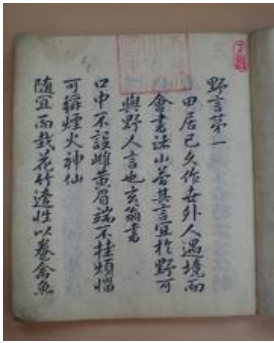 野言第一
田居已久作世外人遇境而
會書誌小若其言宜於野可
與野人言也玄翁書
口中不設雌黃眉端不挂煩惱
可稱煙火神仙
隨宜而栽花竹適性以養禽魚